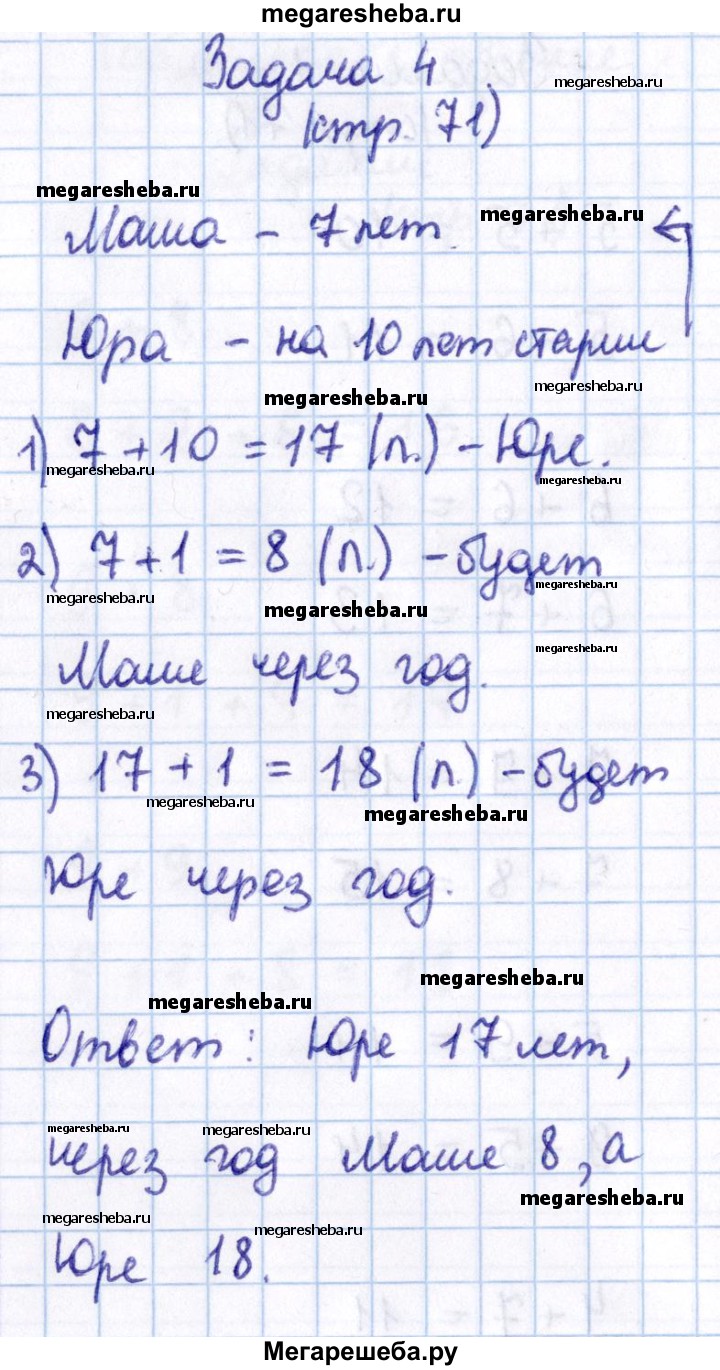 megaresheba.ru
Задача 4
megaresheba.ru
(стр. 71)
megaresheba.ru
megaresheba.ru
Маша - 7 лет
Юра - на 10 лет старше
megaresheba.ru
megaresheba.ru
1) 7 + 10 = 17 (л.) - Юре.
megaresheba.ru
megaresheba.ru
2) 7 + 1 = 8 (л.) - будет
megaresheba.ru
megaresheba.ru
megaresheba.ru
megaresheba.ru
Маше через год.
megaresheba.ru
3) 17 + 1 = 18 (л.) - будет
megaresheba.ru
megaresheba.ru
Юре через год.
megaresheba.ru
megaresheba.ru
Ответ: Юре 17 лет,
megaresheba.ru
megaresheba.ru
через год Маше 8, а
megaresheba.ru
megaresheba.ru
megaresheba.ru
Юре 18.
Мегарешеба.ру